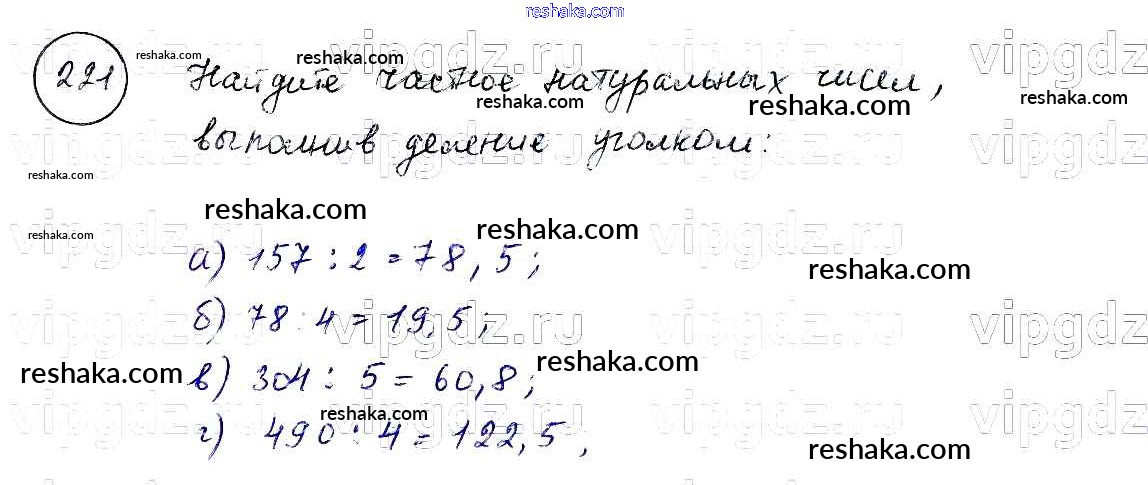 reshaka.com
vipgdz.ru vipgdz.ru vipgdz.ru vipgdz.ru
221 reshaka.com Найдите частное натуральных чисел,
reshaka.com reshaka.com reshaka.com reshaka.com
выполнив деление уголком:
vipgdz.ru vipgdz.ru vipgdz.ru vipgdz.ru
reshaka.com
reshaka.com
vipgdz.ru vipgdz.ru vipgdz.ru vipgdz.ru
reshaka.com reshaka.com
а) 157 : 2 = 78,5;
reshaka.com
б) 78 : 4 = 19,5;
vipgdz.ru vipgdz.ru vipgdz.ru vipgdz.ru
reshaka.com в) 304 : 5 = 60,8; reshaka.com
reshaka.com
vipgdz.ru vipgdz.ru vipgdz.ru vipgdz.ru
г) 490 : 4 = 122,5,
reshaka.com